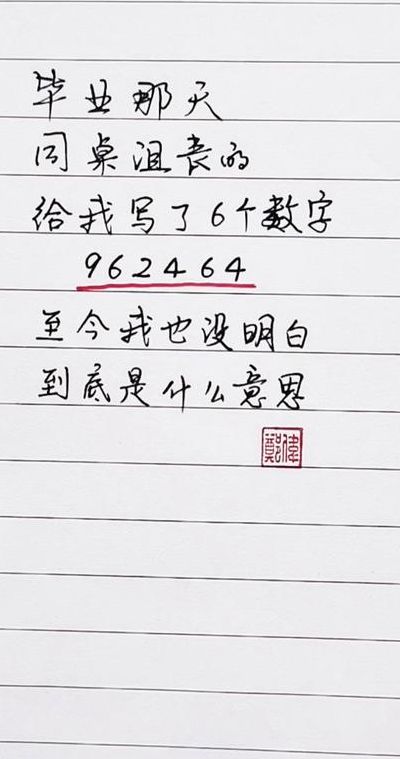 毕业那天
同桌沮丧的
给我写了6个数字
962464
至今我也没明白
到底是什么意思
鄭偉